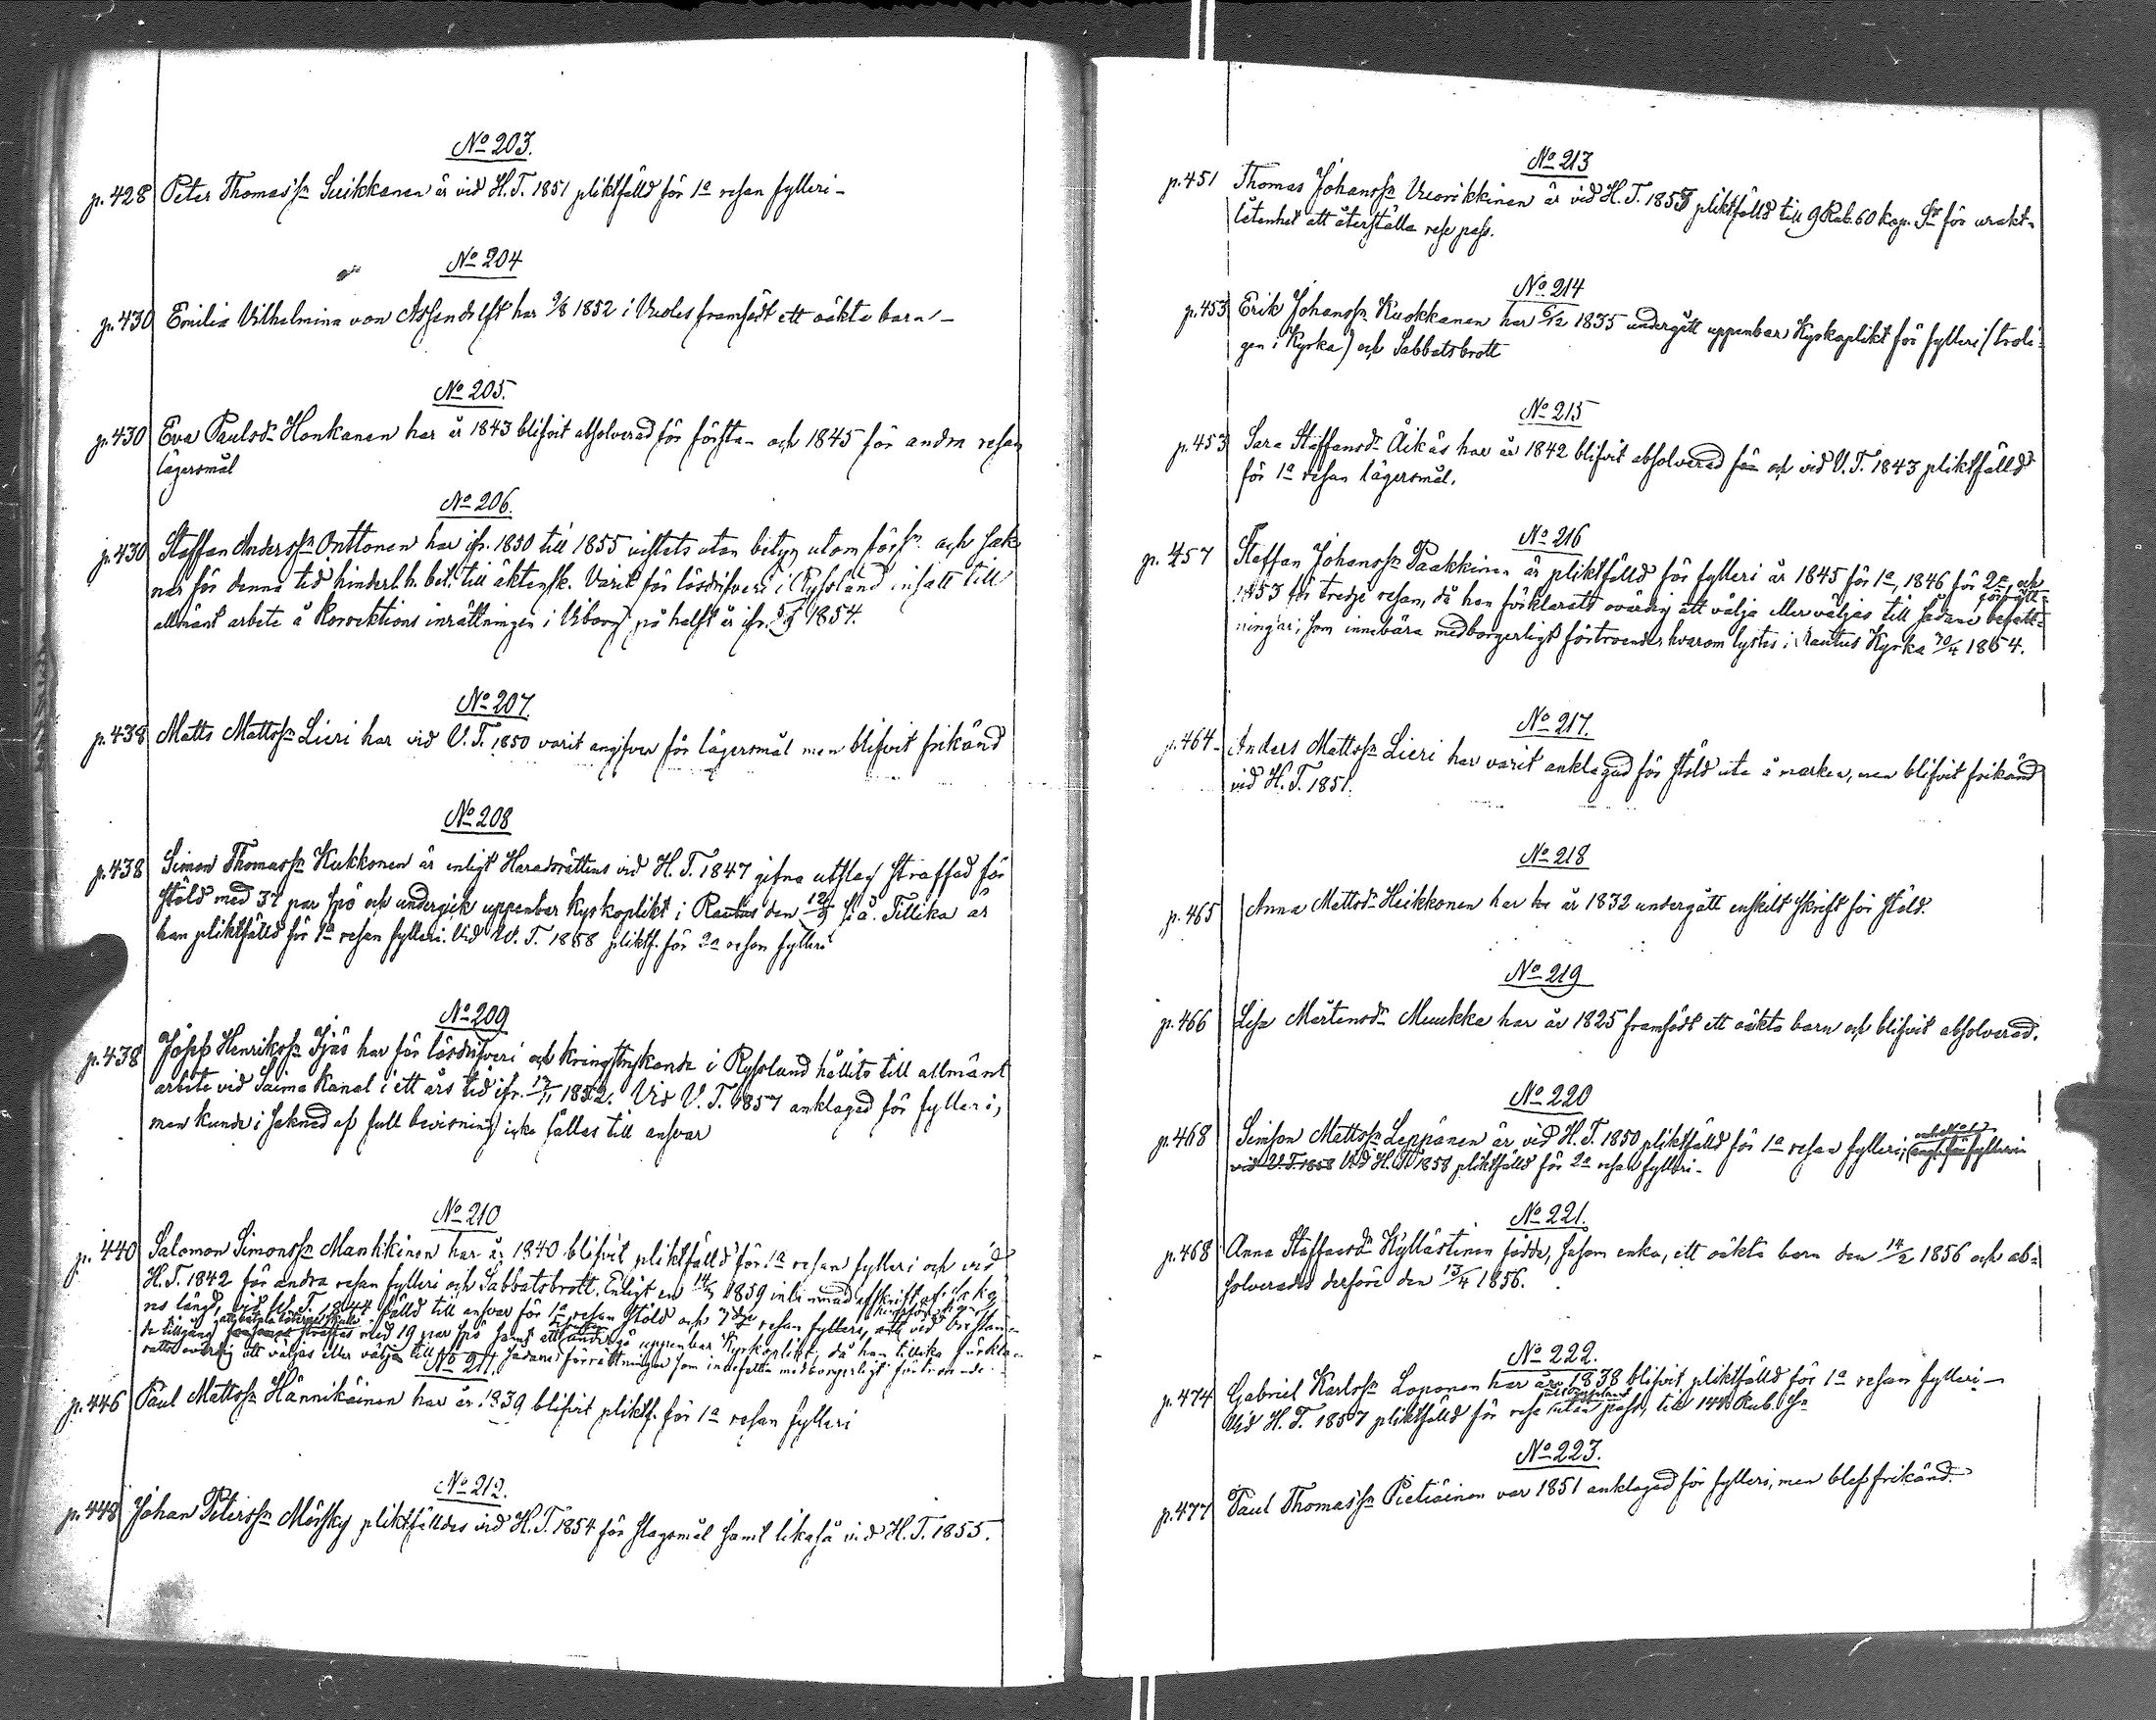 No 203.
p. 428 Peter Thomass:n Suikkanen är vid H. T. 1851 pliktfälld för 1a resan fylleri-
No 204
p. 430 Emilia Vilhelmina von Assendelft har 9/8 1852 i Uudes framfödt ett oäkta barn -
No 205.
p. 430 Eva Paulsdr Honkanen har år 1843 blifvit absolverad för första- och 1845 för andra resan
lägersmål
No 206.
p. 430 Staffan Anderss:n Onttonen har ifr. 1850 till 1855 vistats utan betyg utom förs:n och sak-
nar för denna tid hinderl.h. bet. till äktensk. Varit för lösdrifveri i Ryssland insatt till
allmänt arbete å Korrektions inrättningen i Viborg på halft år ifr. 1854.
No 207.
p. 438 Matts Mattss:n Lieri har vid V. T. 1850 varit angifven för lägersmål men blifvit frikänd
No 208
p. 438 Simon Thomass:n Kukkonen är enligt Häradsrättens vid H. T. 1847 gifna utslag straffad för
stöld med 37 par spö och undergick uppenbar kyrkoplikt i Rautus den 12/9 s. å. Tillika är
han pliktfälld för 1a resan fylleri. Vid V. T. 1858 pliktf. för 2a resan fylleri
No 209
p. 438 Josef Henrikss:n Ijäs har för lösdrifveri och kringstrykande i Ryssland hållits till allmänt
arbete vid Saima Kanal i ett års tid ifr. 1852. Vid V. T. 1857 anklagad för fylleri,
men kunde i saknad af full bevisning icke fällas till ansvar
No 210
p. 440 Salomon Simonss:n Mankkinen har år 1840 blifvit pliktfälld för 1a resan fylleri och vid
H. T. 1842 för andra resan fylleri och Sabbatsbrott. Enligt en 14/3 1859 inlemnad afskrift af
nes längd, vid 1844 fälld till ansvar för 1a resan stöld och 3dje resan fylleri, vid bristan-
de tillgång straffas med 19 par spö samt att undergå uppenbar Kyrkoplikt, då han tillika förkla-
rats ovärdig att väljas eller välja till sådane förrättningar som innefatta medborgerligt förtroende.
No 211.
p. 446 Paul Mattss:n Hännikäinen har år 1839 blifvit pliktf. för 1a resan fylleri
No 212.
p. 448 Johan Peterss:n Mörsky pliktfälldes vid H. T. 1854 för slagsmål samt likaså vid H. T. 1855.
No 213
p. 451 Thomas Johanss:n Vuorikkinen är vid H. T. 1853 pliktfälld till 9 Rub. 60 kop. S:r för urakt-
låtenhet att återställa resepass.
No 214
p. 453 Erik Johanss:n Kuokkanen har 6/12 1835 undergått uppenbar Kyrkoplikt för fylleri (troli-
gen i Kyrka) och Sabbatsbrott
No 215
p. 453 Sara Staffansdr Äikäs har år 1842 blifvit absolverad för och vid V. T. 1843 pliktfälld
för 1a resan lägersmål.
No 216
p. 457 Staffan Johanss:n Paakkinen är pliktfälld för fylleri år 1845 för 1a, 1846 för 2a och
1853 för tredje resan, då han förklarats ovärdig att välja eller väljas till sådane befatt-
ningar, som innebära medborgerligt förtroende, hvarom lystes i Rautus Kyrka 30/4 1854.
No 217.
p. 464 Anders Mattss:n Lieri har varit anklagad för stöld ute å marken, men blifvit frikänd
vid H. T. 1851.
No 218
p. 465 Anna Mattsdr Heikkonen har år 1832 undergått enskilt skrift för stöld.
No 219
p. 466 Lisa Mårtensdr Muukka har år 1825 framfödt ett oäkta barn och blifvit absolverad.
No 220
p. 468 Simon Mattss:n Leppänen är vid H. T. 1850 pliktfälld för 1a resan fylleri, angf. för fylleri
vid V. T. 1858 Vid H. T. 1858 pliktfälld för 2a resan fylleri -
No 221.
p. 468 Anna Staffansdr Kyllästinen födde, såsom enka, ett oäkta barn den 14/2 1856 och ab-
solverades derföre den 13/4 1856.
No 222.
p. 474 Gabriel Karlss:n Loponen har år 1838 blifvit pliktfälld för 1a resan fylleri -
Vid H. T. 1857 pliktfälld för resa utan pass, till 144 Rub. S:r
No 223.
p. 477 Paul Thomass:n Pietiäinen var 1851 anklagad för fylleri, men blef frikänd.